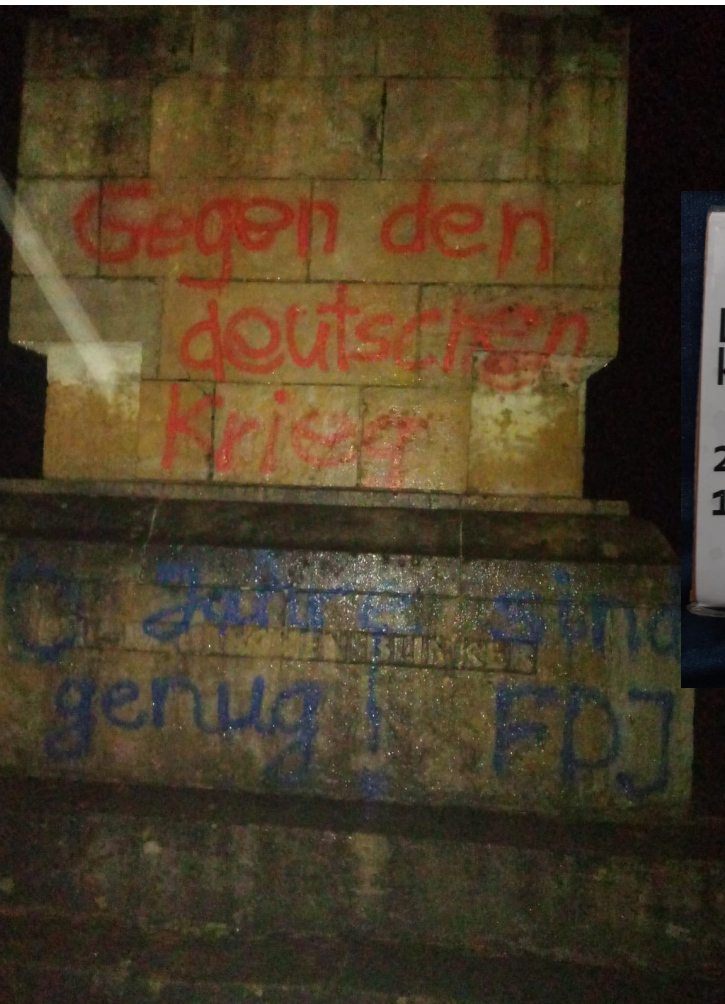 Gegen den
deutschen
Krieg
0 Jahre sind
genug! FDJ
2
1